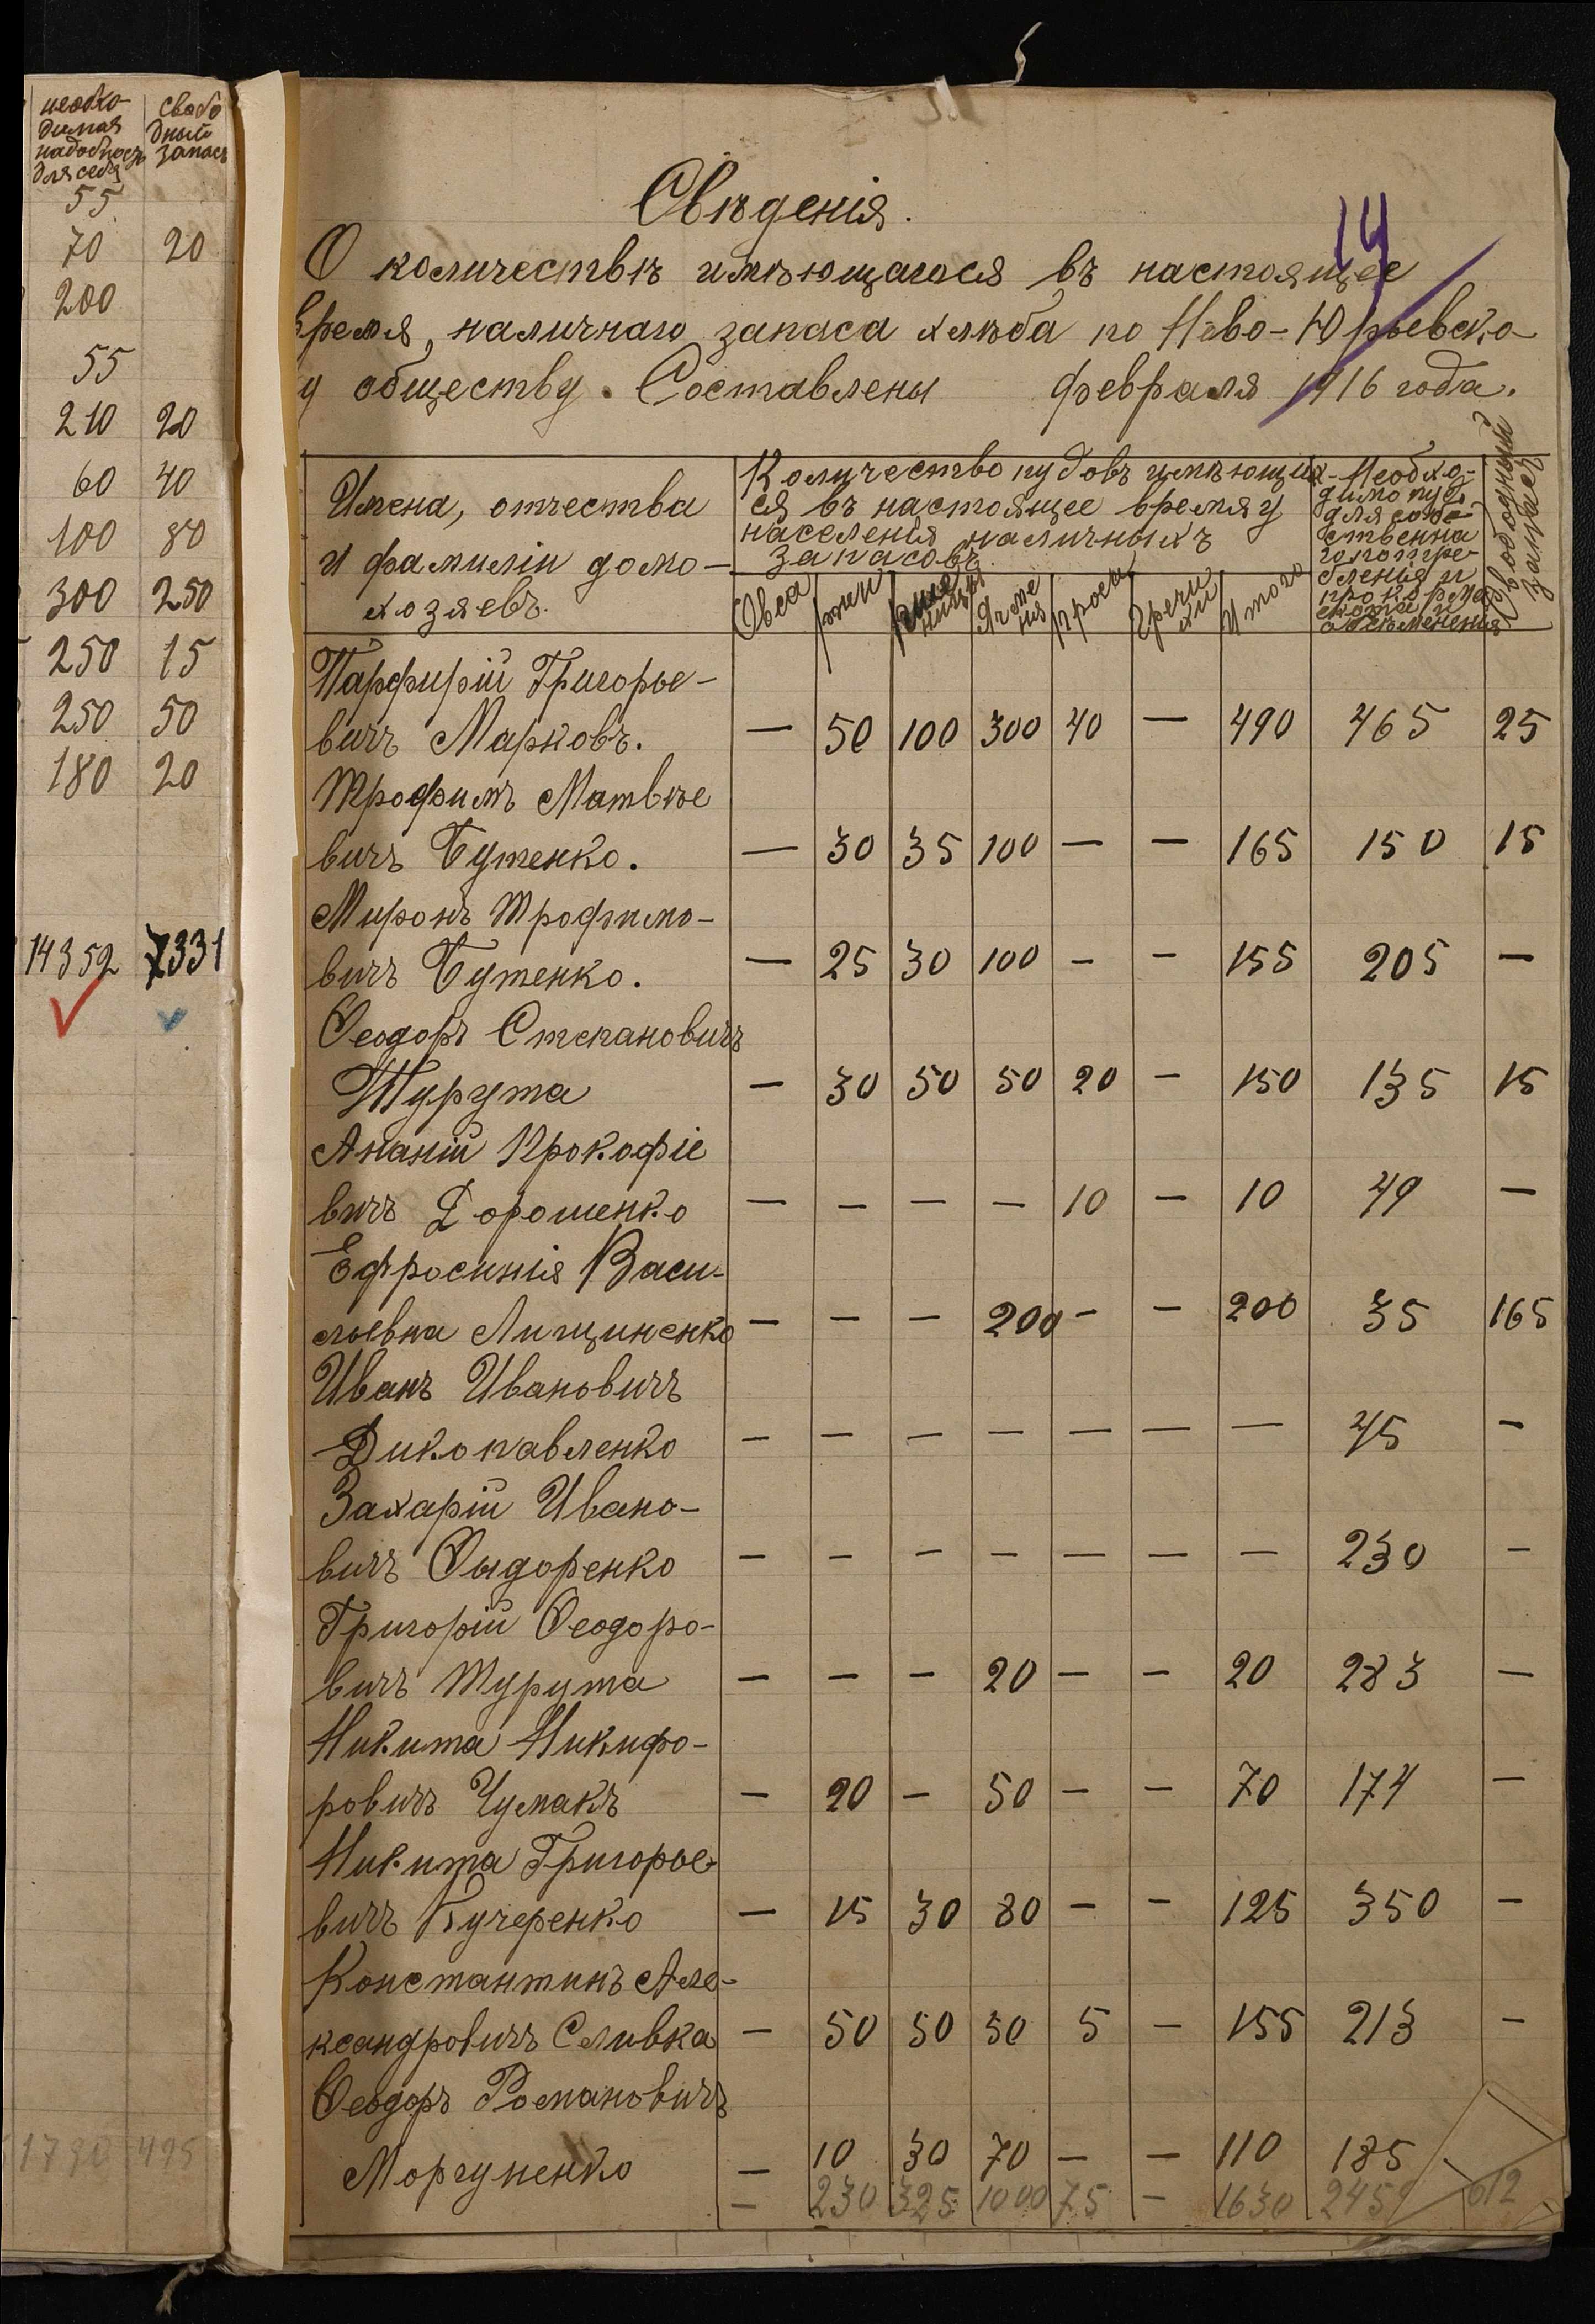 необхо- свобо
димая дный
надобность запасъ
для себя
55
70 20
200
55
210 20
60 40
100 80
300 250
250 15
250 50
180 20
14352 7331
1790 495
14
Свѣденія.
О количествѣ имѣющагося въ настоящее
время, наличнаго запаса хлѣба по Ново-Юрьевско-
у обществу. Составлены февраля 1916 года.
Имена, отчества
и фамиліи домо-
хозяевъ.
Количество пудовъ имѣющих-
ся въ настоящее время у
населенія наличныхъ
запасовъ.
Овса ржи пше ницы Ячме ня проса гречи хи Итого
Необхо-
димо пуд
для собс-
ственна
го потре-
бленія и
прокорма
скота и
обсѣмененія
Свободный запасъ
Парфирій Григорье-
вичъ Марковъ. — 50 100 300 40 — 490 465 25
Трофимъ Матвѣе
вичъ Бутенко. — 30 35 100 — — 165 150 15
Миронъ Трофимо-
вичъ Бутенко. — 25 30 100 - - 155 205 —
Ѳеодоръ Степановичъ
Шурута — 30 50 50 20 - 150 135 15
Ананій Прокофіе
вичъ Дорошенко — — — — 10 — 10 49 —
Ефросинія Васи-
льевна Лищиненко — — — 200 - — 200 35 165
Иванъ Ивановичъ
Дикопавленко — — — — — — — 45 -
Захарій Ивано-
вичъ Сыдоренко — — — — — — — 230 -
Григорій Ѳеодоро-
вичъ Шурута — — — 20 — — 20 283 —
Никита Никифо-
ровичъ Чумакъ — 20 — 50 — — 70 174 —
Никита Григорье-
вичъ Кучеренко — 15 30 80 — — 125 350 —
Константинъ Але-
ксандровичъ Сливка — 50 50 50 5 — 155 213 —
Ѳеодоръ Романовичъ
Моргуненко — 10 30 70 — — 110 185
— 230 325 1000 75 — 1630 2459 612